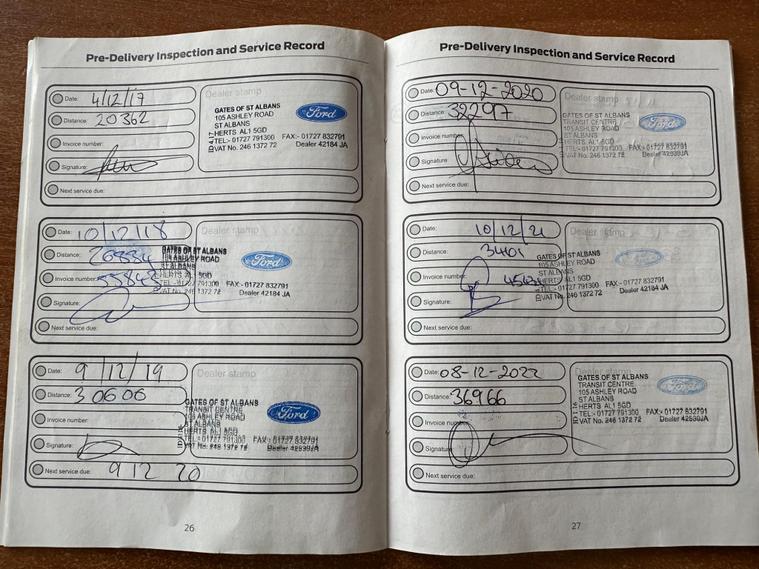 Pre-Delivery Inspection and Service Record
Date: 4/12/17
Distance: 20362
Invoice number:
Signature:
Next service due:
Dealer stamp
GATES OF ST ALBANS
105 ASHLEY ROAD
ST ALBANS
HERTS AL1 5GD
TEL:- 01727 791300 FAX:- 01727 832791
VAT No. 246 1372 72 Dealer 42184 JA
Ford
Date: 10/12/18
Distance: 26834
Invoice number: 55843
Signature:
Next service due:
Dealer stamp
GATES OF ST ALBANS
105 ASHLEY ROAD
ST ALBANS
HERTS AL1 5GD
TEL:- 01727 791300 FAX:- 01727 832791
VAT No. 246 1372 72 Dealer 42184 JA
Ford
Date: 9/12/19
Distance: 30606
Invoice number:
Signature:
Next service due: 9 12 20
Dealer stamp
GATES OF ST ALBANS
TRANSIT CENTRE
105 ASHLEY ROAD
ST ALBANS
HERTS AL1 5GD
TEL:- 01727 791300 FAX:- 01727 832791
VAT No. 246 1372 72 Dealer 42530JA
Ford
26
Pre-Delivery Inspection and Service Record
Date: 09-12-2020
Distance: 32297
Invoice number:
Signature:
Next service due:
Dealer stamp
GATES OF ST ALBANS
TRANSIT CENTRE
105 ASHLEY ROAD
ST ALBANS
HERTS AL1 5GD
TEL:- 01727 791300 FAX:- 01727 832791
VAT No. 246 1372 72 Dealer 42530JA
Ford
Date: 10/12/21
Distance: 34101
Invoice number:
Signature:
Next service due:
Dealer stamp
GATES OF ST ALBANS
105 ASHLEY ROAD
ST ALBANS
HERTS AL1 5GD
TEL:- 01727 791300 FAX:- 01727 832791
VAT No. 246 1372 72 Dealer 42184 JA
Ford
Date: 08-12-2022
Distance: 36966
Invoice number:
Signature:
Next service due:
Dealer stamp
GATES OF ST ALBANS
TRANSIT CENTRE
105 ASHLEY ROAD
ST ALBANS
HERTS AL1 5GD
TEL:- 01727 791300 FAX:- 01727 832791
VAT No. 246 1372 72 Dealer 42530JA
Ford
27